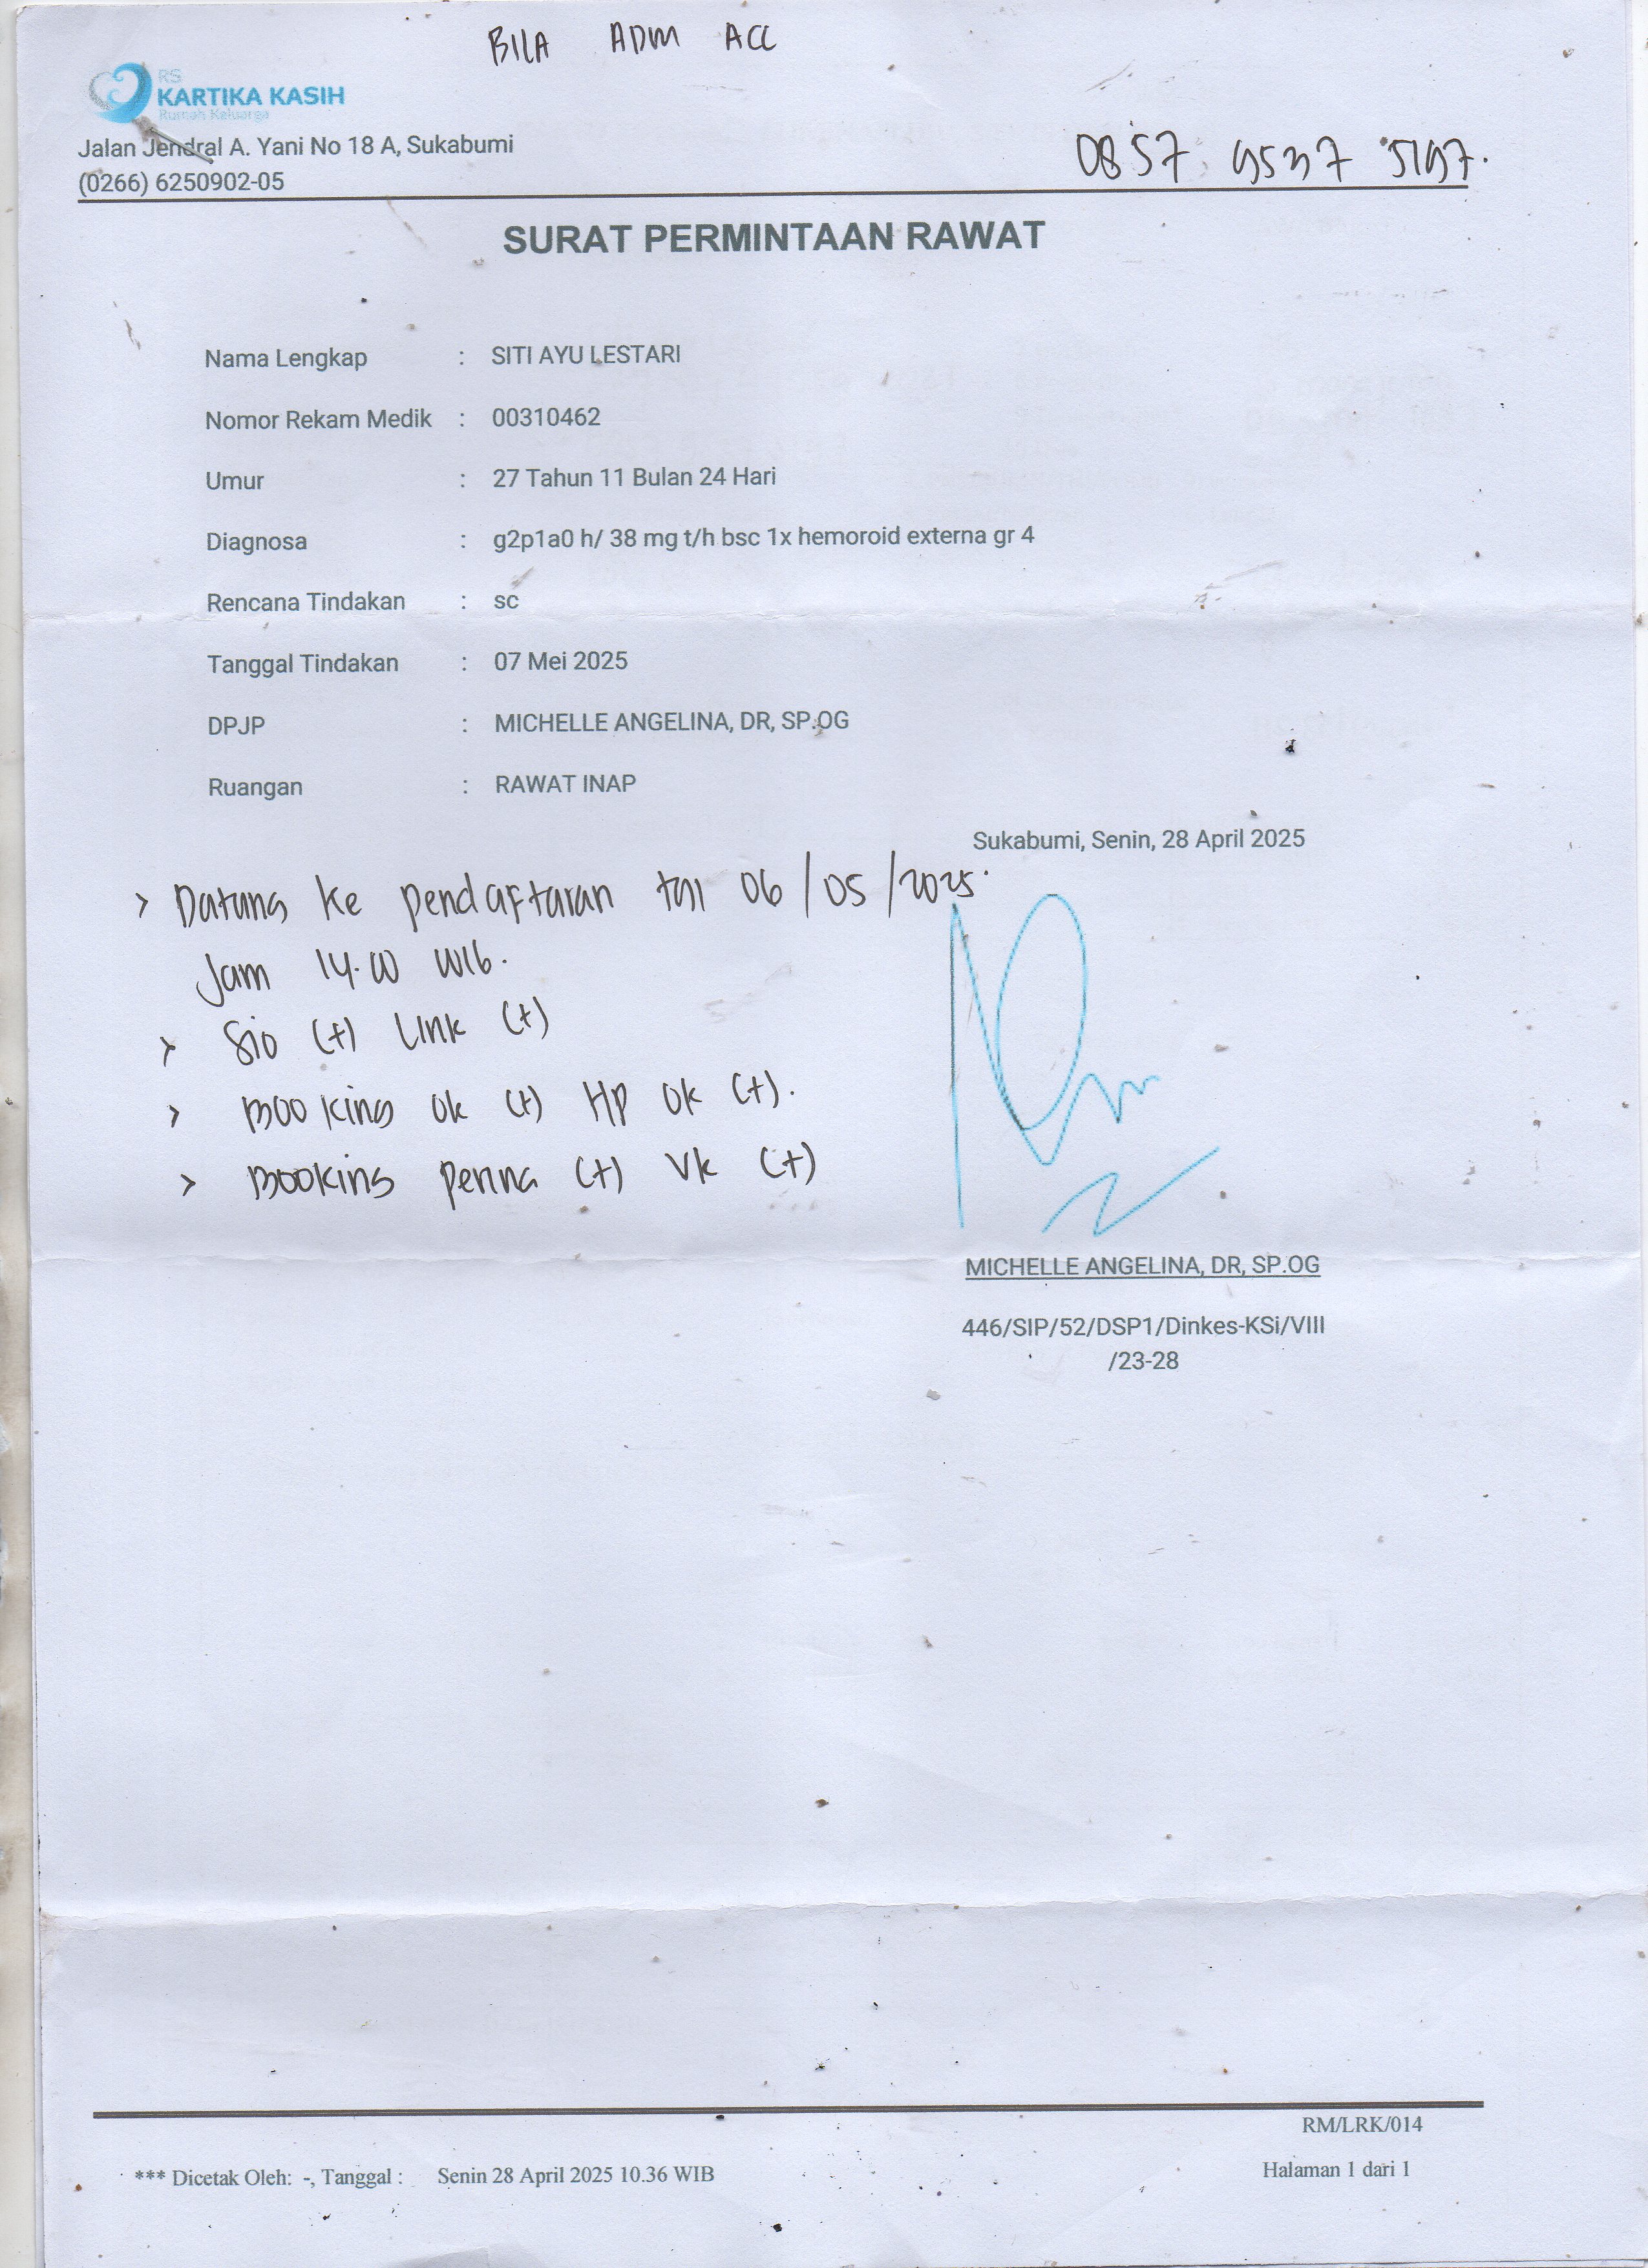 BILA ADM ACC
RS
KARTIKA KASIH
Rumah Keluarga
Jalan Jendral A. Yani No 18 A, Sukabumi
(0266) 6250902-05
0857 9537 5197.
SURAT PERMINTAAN RAWAT
Nama Lengkap : SITI AYU LESTARI
Nomor Rekam Medik : 00310462
Umur : 27 Tahun 11 Bulan 24 Hari
Diagnosa : g2p1a0 h/ 38 mg t/h bsc 1x hemoroid externa gr 4
Rencana Tindakan : sc
Tanggal Tindakan : 07 Mei 2025
DPJP : MICHELLE ANGELINA, DR, SP.OG
Ruangan : RAWAT INAP
Sukabumi, Senin, 28 April 2025
> Datang ke pendaftaran tgl 06/05/2025.
Jam 14.00 WIB.
> SIO (+) Link (+)
> Booking ok (+) Hp ok (+).
> Booking perina (+) Vk (+)
MICHELLE ANGELINA, DR, SP.OG
446/SIP/52/DSP1/Dinkes-KSi/VIII
/23-28
RM/LRK/014
*** Dicetak Oleh: -, Tanggal : Senin 28 April 2025 10.36 WIB
Halaman 1 dari 1